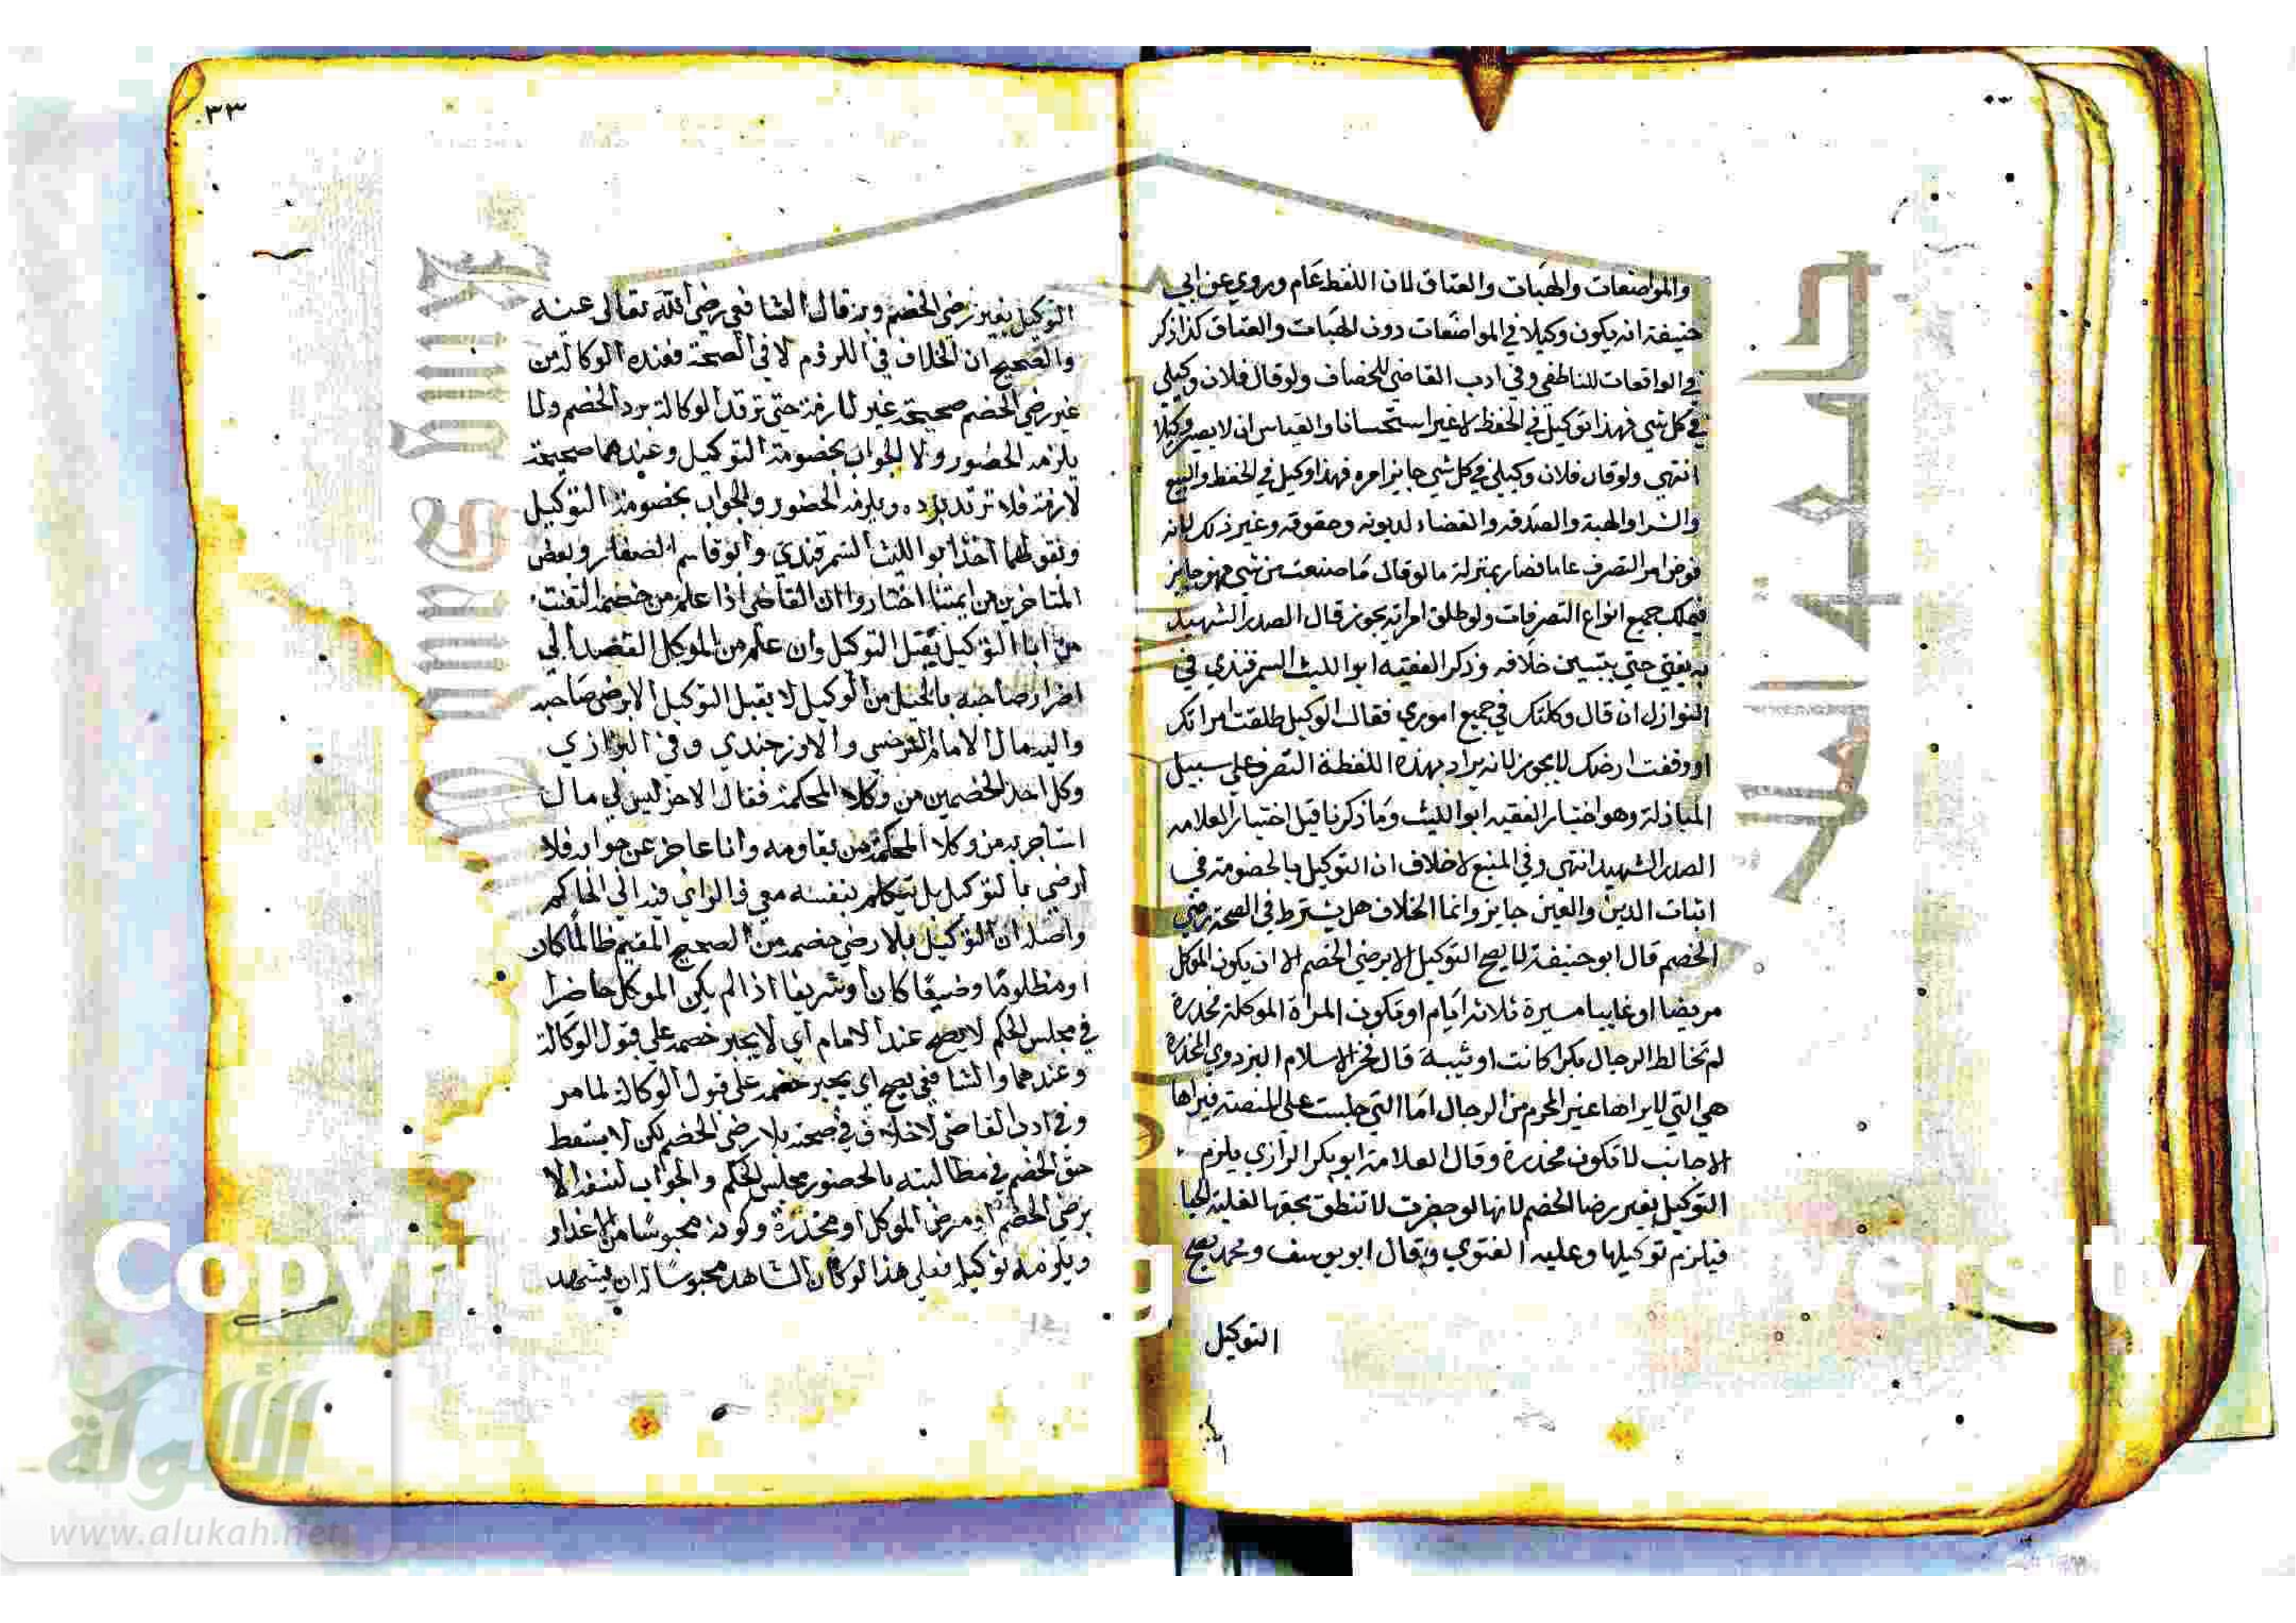 والمواضعات والهبات والعتاق لان اللفظ عام وروي عن ابي
حنيفة انه يكون وكيلا في المواضعات دون الهبات والعتاق كذا ذكر
في الواقعات للناطفي وفي ادب القاضي للخصاف ولو قال فلان وكيلي
في كل شي فهذا توكيل في الحفظ لا غير استحسانا والقياس ان لا يصير وكيلا
انتهي ولو قال فلان وكيلي في كل شي جايز امره فهذا وكيل في الحفظ والبيع
والشرا والهبة والصدقه والقضاء لديونه وحقوقه وغير ذلك لانه
فوض امر التصرف عاما فصار بمنزلة ما لو قال ما صنعت من شي فهو جايز
فيملك جميع انواع التصرفات ولو طلق امراته يجوز قال الصدر الشهيد
به يفتي حتي يتبين خلافه وذكر الفقيه ابو الليث السمرقندي في
النوازل ان قال وكلتك في جميع اموري فقال الوكيل طلقت امراتك
او وقفت ارضك لا يجوز لانه يراد بهذه اللفظة التصرف علي سبيل
المبادلة وهو اختيار الفقيه ابو الليث وما ذكرنا قبل اختيار العلامه
الصدر الشهيد انتهي وفي المنبع لا خلاف ان التوكيل بالخصومة في
اثبات الدين والعين جايز وانما الخلاف هل يشترط في الصحة رضي
الخصم قال ابو حنيفة لا يصح التوكيل الا برضي الخصم الا ان يكون الموكل
مريضا او غايبا مسيرة ثلاثه ايام او تكون المراة الموكلة مخدرة
لم تخالط الرجال بكرا كانت او ثيبة قال فخر الاسلام البزدوي المخدرة
هي التي لا يراها غير المحرم من الرجال اما التي جلست علي المنصة فيراها
الاجانب لا تكون مخدرة وقال العلامة ابو بكر الرازي يلزم
التوكيل بغير رضا الخصم لانها لو حضرت لا تنطق بحقها لغلبة الحيا
فيلزم توكيلها وعليه الفتوي وقال ابو يوسف ومحمد يصح
التوكيل
٣٣
التوكيل بغير رضي الخصم وبه قال الشافعي رضي الله تعالى عنه
والصحيح ان الخلاف في اللزوم لا في الصحة فعنده الوكالة من
غير رضي الخصم صحيحة غير لازمة حتي ترتد الوكالة برد الخصم ولا
يلزمه الحضور ولا الجواب بخصومة التوكيل وعندهما صحيحة
لازمة فلا ترتد برده ويلزمه الحضور والجواب بخصومة التوكيل
وبقولهما اخذ ابو الليث السمرقندي وابو قاسم الصفار وبعض
المتاخرين من ايمتنا اختاروا ان القاضي اذا علم من خصمه التعنت
من ابا التوكيل يقبل التوكيل وان علم من الموكل القصد الي
اضرار صاحبه بالحيل من الوكيل لا يقبل التوكيل الا برضي صاحبه
واليه مال الامام السرخسي والاوزجندي وفي البزازي
وكل احد الخصمين من وكلا المحكمة فقال الاخر ليس لي مال
استاجر به من وكلا المحكمة من يقاومه وانا عاجز عن جوابه فلا
ارضي بالتوكيل بل يتكلم بنفسه معي فالراي فيه الي الحاكم
واصله ان التوكيل بلا رضي خصمه من الصحيح المقيم ظالما كان
او مظلوما وضيعا كان او شريفا اذا لم يكن الموكل حاضرا
في مجلس الحكم لا يصح عند الامام اي لا يجبر خصمه علي قبول الوكالة
وعندهما والشافعي يصح اي يجبر خصمه علي قبول الوكالة لما مر
وفي ادب القاضي لا خلاف في صحته بلا رضي الخصم لكن لا يسقط
حق الخصم في مطالبته بالحضور مجلس الحكم والجواب بنفسه الا
برضي الخصم او مرض الموكل او مخدرة وكونه محبوسا من الاعذار
ويلزمه توكيله فعلي هذا لو كان الشاهد محبوسا له ان يشهد
Copyr g versity
الألوكة
www.alukah.net